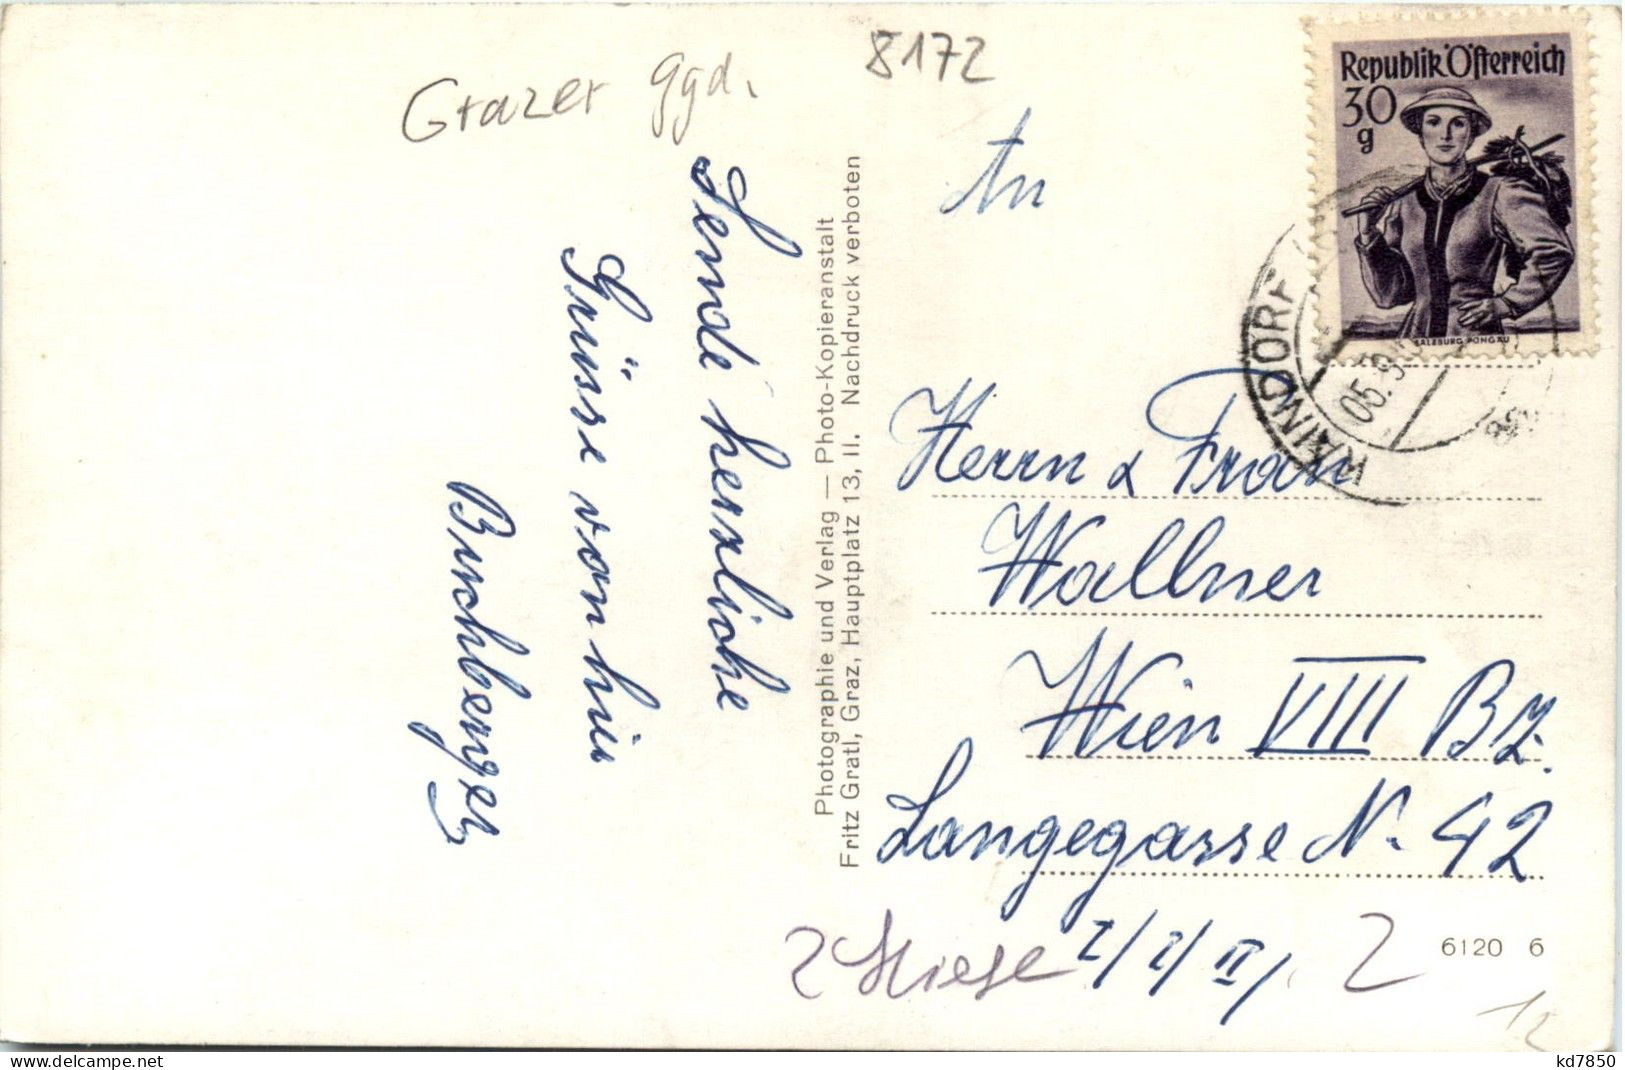 8172
Grazer Ggd.
Sende herzliche
Grüsse von hier
Buchberger
Photographie und Verlag — Photo-Kopieranstalt
Fritz Gratl, Graz, Hauptplatz 13, II. Nachdruck verboten
Republik Österreich
30
g
SALZBURG PONGAU
KAINDORF
05.
An
Herrn & Frau
Wallner
Wien VIII Bz.
Langegasse N. 42
I/I/II/
2 Stiege
2
6120 6
www.delcampe.net
kd7850